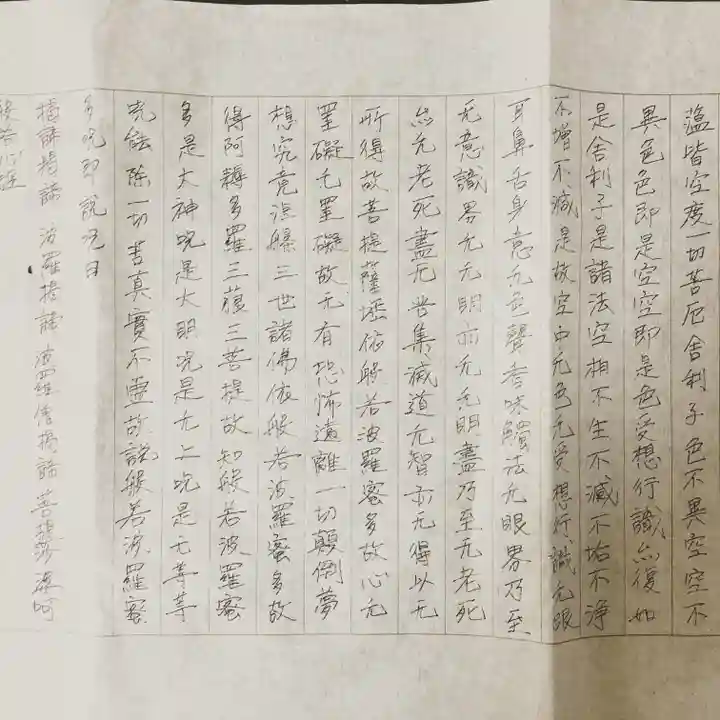 蕴皆空度一切苦厄舎利子色不異空空不
異色色即是空空即是色受想行識亦復如
是舎利子是諸法空相不生不滅不垢不浄
不増不減是故空中无色无受想行識无眼
耳鼻舌身意无色聲香味觸法无眼界乃至
无意識界无无明亦无无明盡乃至无老死
亦无老死盡无苦集滅道无智亦无得以无
所得故菩提薩埵依般若波羅蜜多故心无
罣礙无罣礙故无有恐怖遠離一切顛倒夢
想究竟涅槃三世諸佛依般若波羅蜜多故
得阿耨多羅三藐三菩提故知般若波羅蜜
多是大神咒是大明咒是无上咒是无等等
咒能除一切苦真實不虚故説般若波羅蜜
多咒即説咒曰
揭諦揭諦 波羅揭諦 波羅僧揭諦 菩提莎婆呵
般若心経